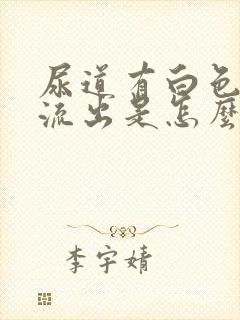 尿道有白色
流出是怎麼
李宇婧